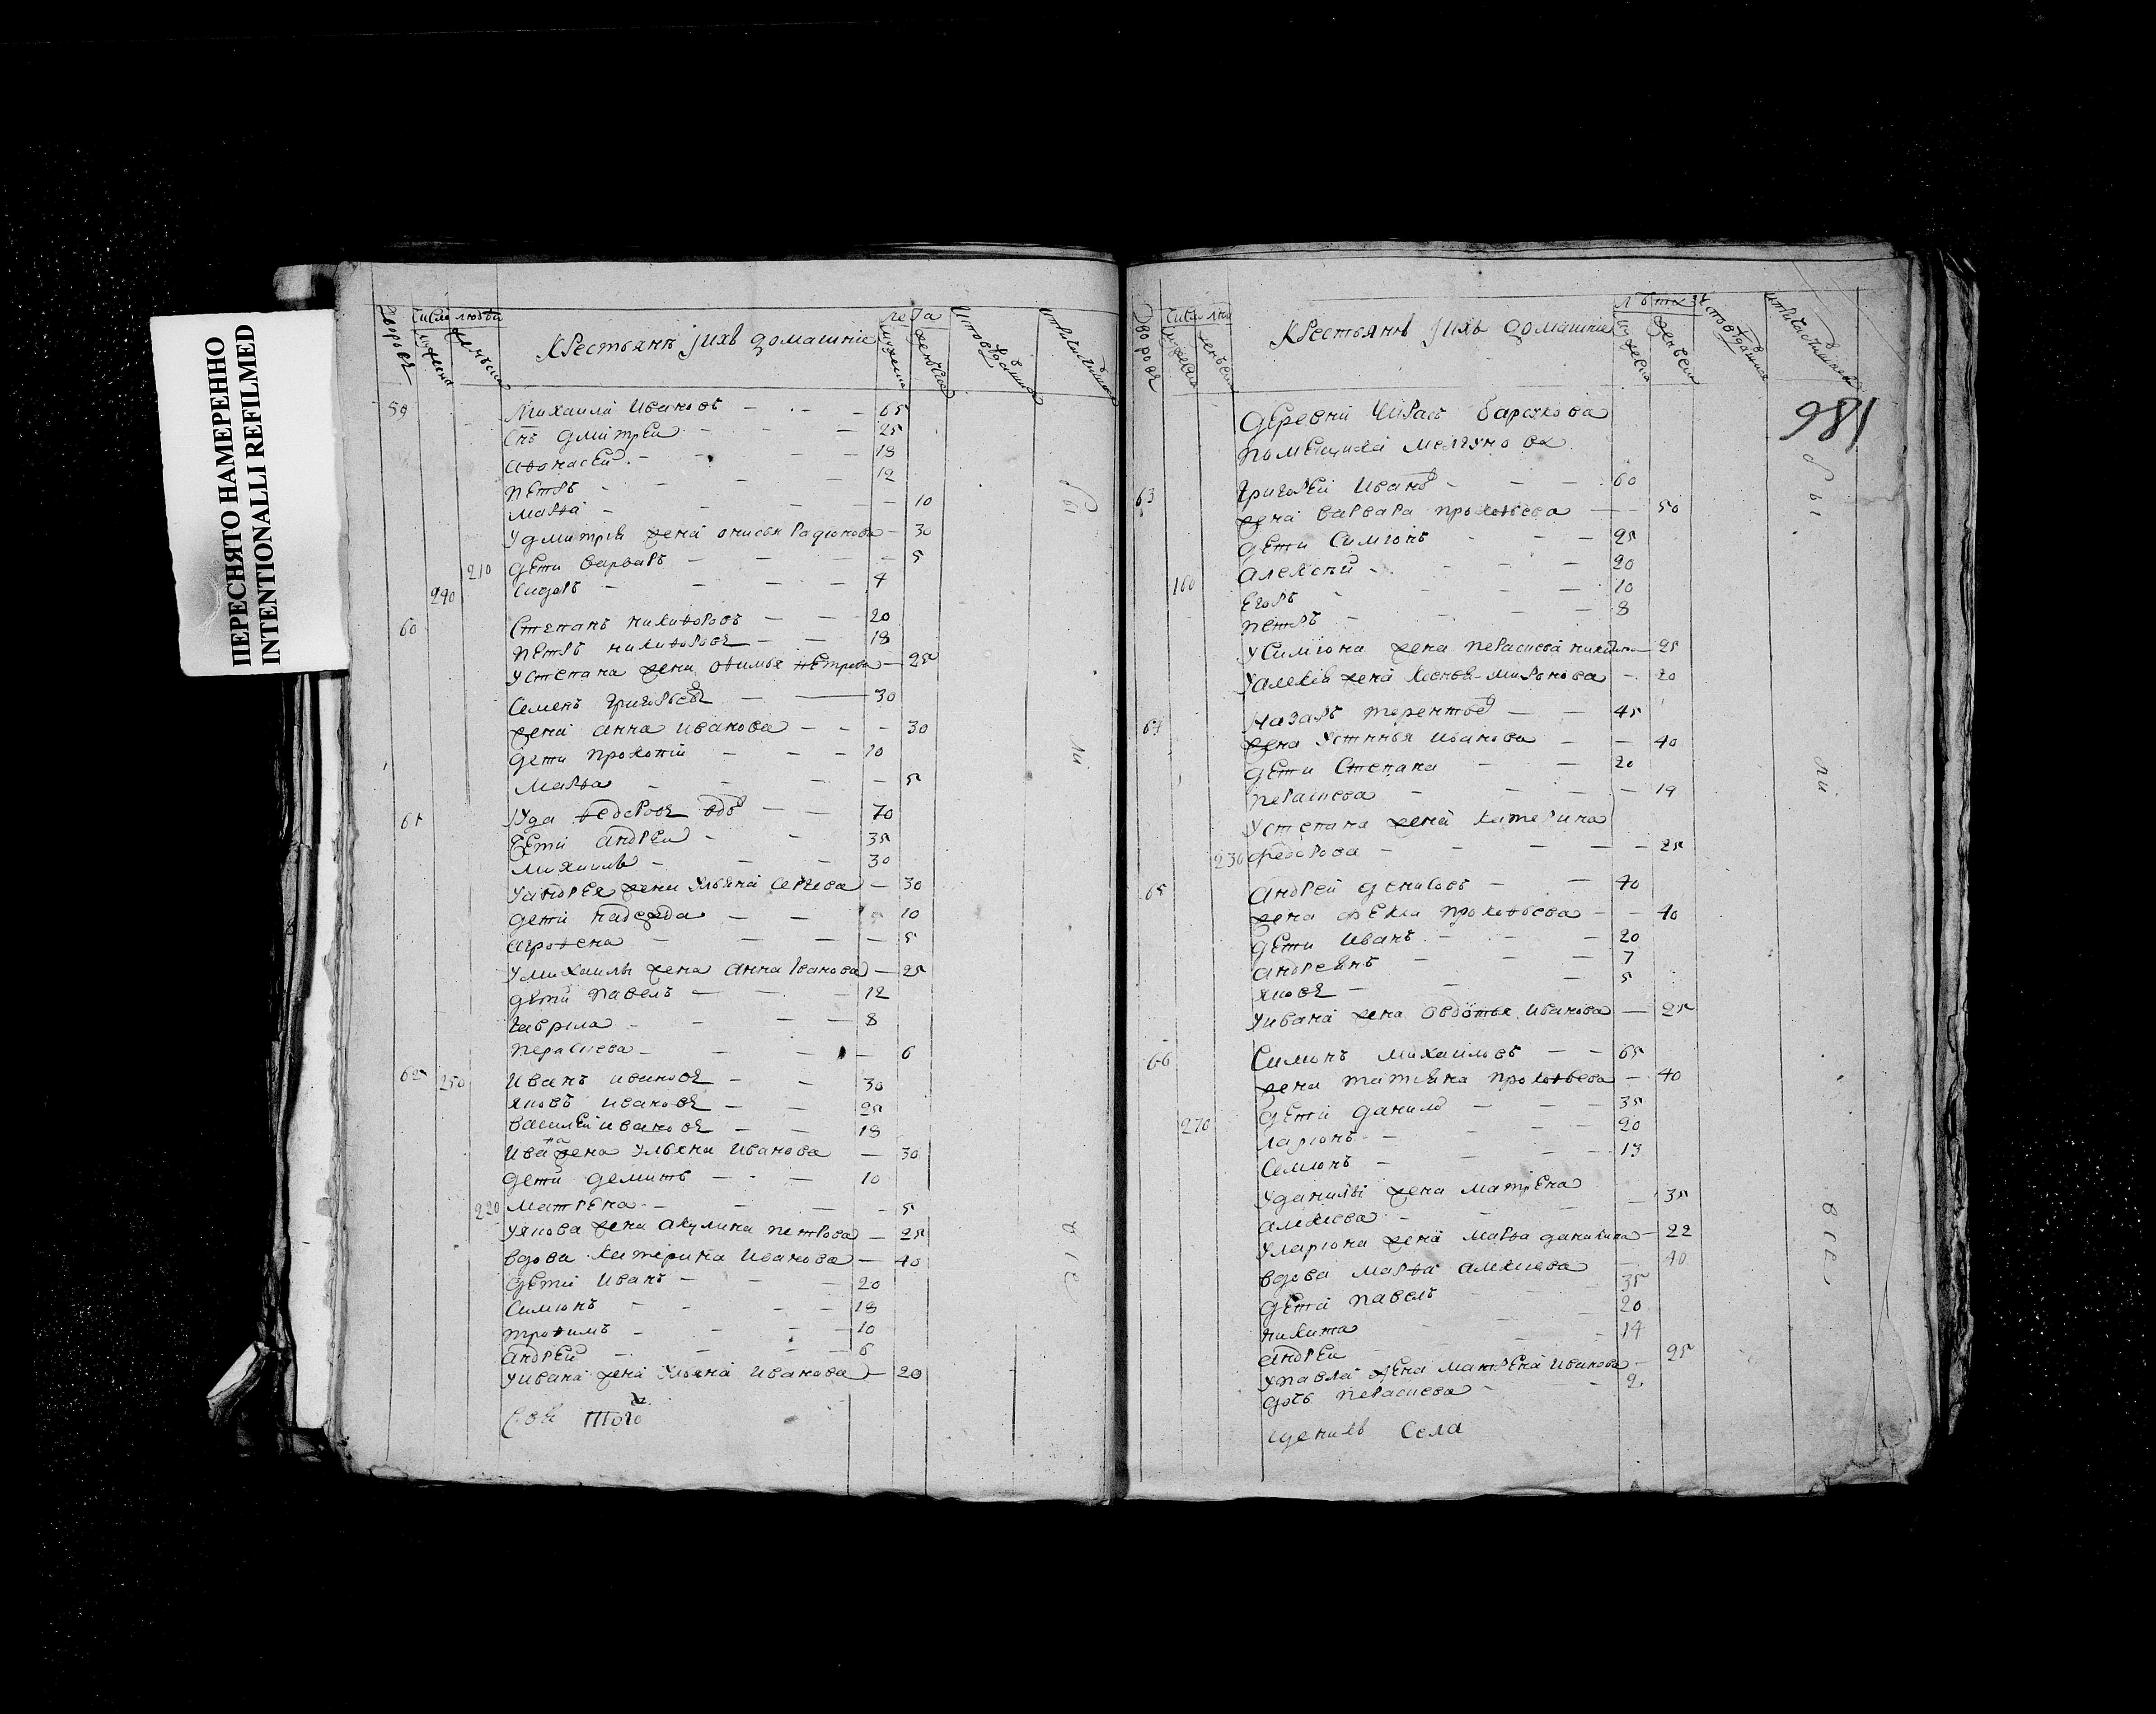 ПЕРЕСНЯТО НАМЕРЕННО
INTENTIONALLI REFILMED
число людей лета
дворовъ мужеска женска Крестьянъ ихъ домашние мужеска женска
59 Михаила Ивановъ 65
Снъ Дмитреи 25
Афонасей 18
Петръ 12
Марфа 10
У Дмитрея жена Анисья Радионова 30
210 Дети Варвара 5
240 Сидоръ 4
60 Степанъ Никифоровъ 20
Петръ Никифоровъ 18
У Степана жена Офимья Петрова 25
Семенъ Григорьевъ 30
жена Анна Иванова 30
Дети Прокофий 10
Марфа 5
61 Иуда Федоровъ вдовъ 70
Дети Андреи 35
Михаила 30
У Андрея жена Ульяна Сергеева 30
Дети Надежда 10
Агрофена 5
У Михаилы жена Анна Иванова 25
Дети Павелъ 12
Гаврила 8
Парасцева 6
62 250 Иванъ Ивановъ 30
Яковъ Ивановъ 25
Василей Ивановъ 18
Ивана жена Ульяна Иванова 30
Дети Дементъ 10
220 Матрена 5
У Якова жена Акулина Петрова 25
Вдова Катерина Иванова 40
Дети Иванъ 20
Симионъ 18
Трофимъ 10
Андрей 6
У Ивана жена Ульяна Иванова 20
были все
дворовъ число люд лѣта
мужеска женска Крестьянъ ихъ домашние мужеска женска
186
Деревни Барскова
Помещика
63 Григорей Ивановъ 60
жена Варвара Прокофьева 50
Дети Симионъ 25
Алексей 20
160 Егоръ 10
Петръ 8
У Симиона жена Парасцева 25
У Алексея жена Ксенья Миронова 20
64 Назаръ Терентьевъ 45
жена Устинья Иванова 40
Дети Степанъ 20
Парасцева 19
У Степана жена Катерина
230 Федорова 25
65 Андрей Денисовъ 40
жена Фекла Прокофьева 40
Дети Иванъ 20
Андреянъ 7
Яковъ 5
У Ивана жена Овдотья Иванова 25
66 Симонъ Михаиловъ 65
жена Татьяна Прокофьева 40
Дети Данило 35
270 Ларионъ 20
Семионъ 13
У Данилы жена Матрена
Алексеева 35
У Лариона жена Марфа Данилова 22
Вдова Марфа Алексеева 40
Дети Павелъ 35
Никита 20
Андреи 14
У Павла жена Матрена Иванова 25
дочь Парасцева 2
Села
были все